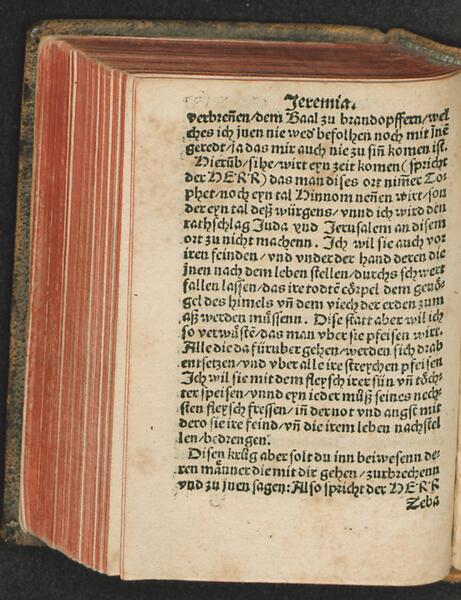 Jeremia.
verbreñen/dem Baal zu brandopffern/wel
ches ich jnen nie wed befolhen noch mit jnē
geredt/ja das mir auch nie zu siñ komen ist.
Hierūb/sihe/wirt eyn zeit komen (spricht
der HERR) das man dises ort nim̄er To-
phet/noch eyn tal Hinnom neñen wirt/son
der eyn tal deß würgens/vnnd ich wird den
rathschlag Juda vnd Jerusalem an disem
ort zu nicht machenn. Ich wil sie auch vor
iren feinden/vnd vnder der hand deren die
jnen nach dem leben stellen/durchs schwert
fallen lassen/das ire todtē cörpel dem gevö-
gel des himels vñ dem viech der erden zum
aß werden müssenn. Dise statt aber wil ich
so verwůstē/das man vber sie pfeisen wirt.
Alle die da fürüber gehen/werden sich drab
entsetzen/vnd vber alle ire streychen pfeisen
Ich wil sie mit dem fleysch irer sün vñ töch-
ter speisen/vnnd eyn ieder můß seines nech-
sten fleysch fressen/in der not vnd angst mit
dero sie ire feind/vñ die irem leben nachstel
len/bedrengen.
Disen krůg aber solt du inn beiwesenn de-
ren männer die mit dir gehen/zurbrechenn
vnd zu jnen sagen: Also spricht der HERR
Zeba